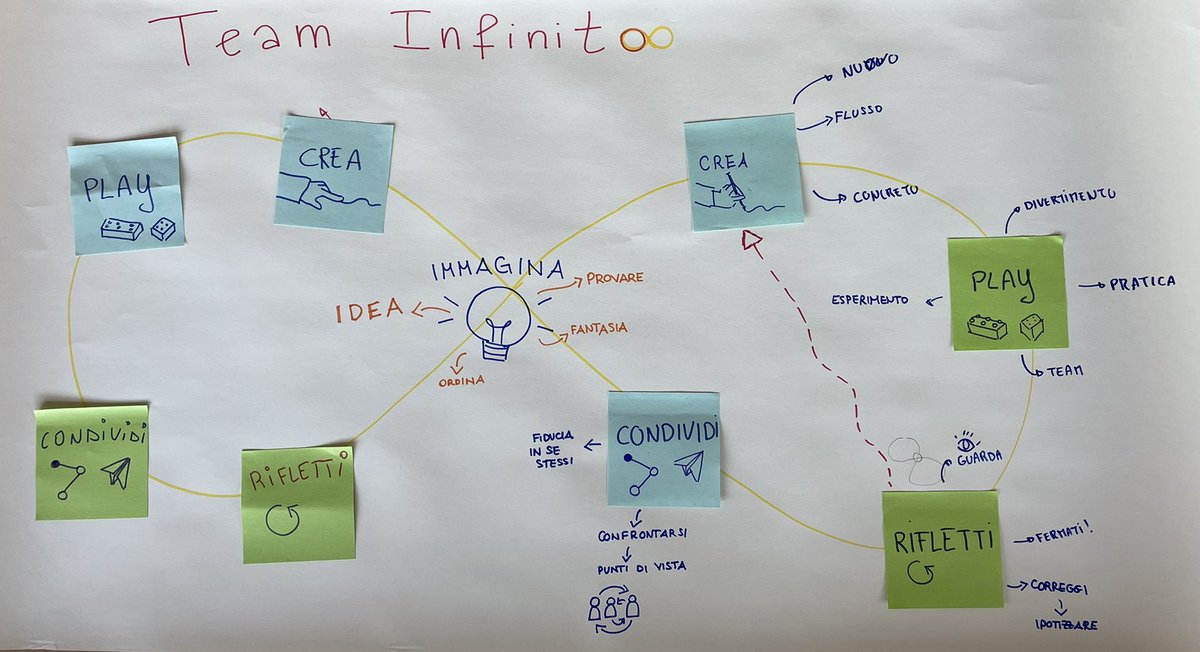 Team Infinito
PLAY
CREA
CONDIVIDI
RIFLETTI
IMMAGINA
IDEA
PROVARE
FANTASIA
ORDINA
CREA
NUOVO
FLUSSO
CONCRETO
PLAY
DIVERTIMENTO
PRATICA
ESPERIMENTO
TEAM
CONDIVIDI
FIDUCIA
IN SE
STESSI
CONFRONTARSI
PUNTI DI VISTA
RIFLETTI
GUARDA
FERMATI!
CORREGGI
IPOTIZZARE